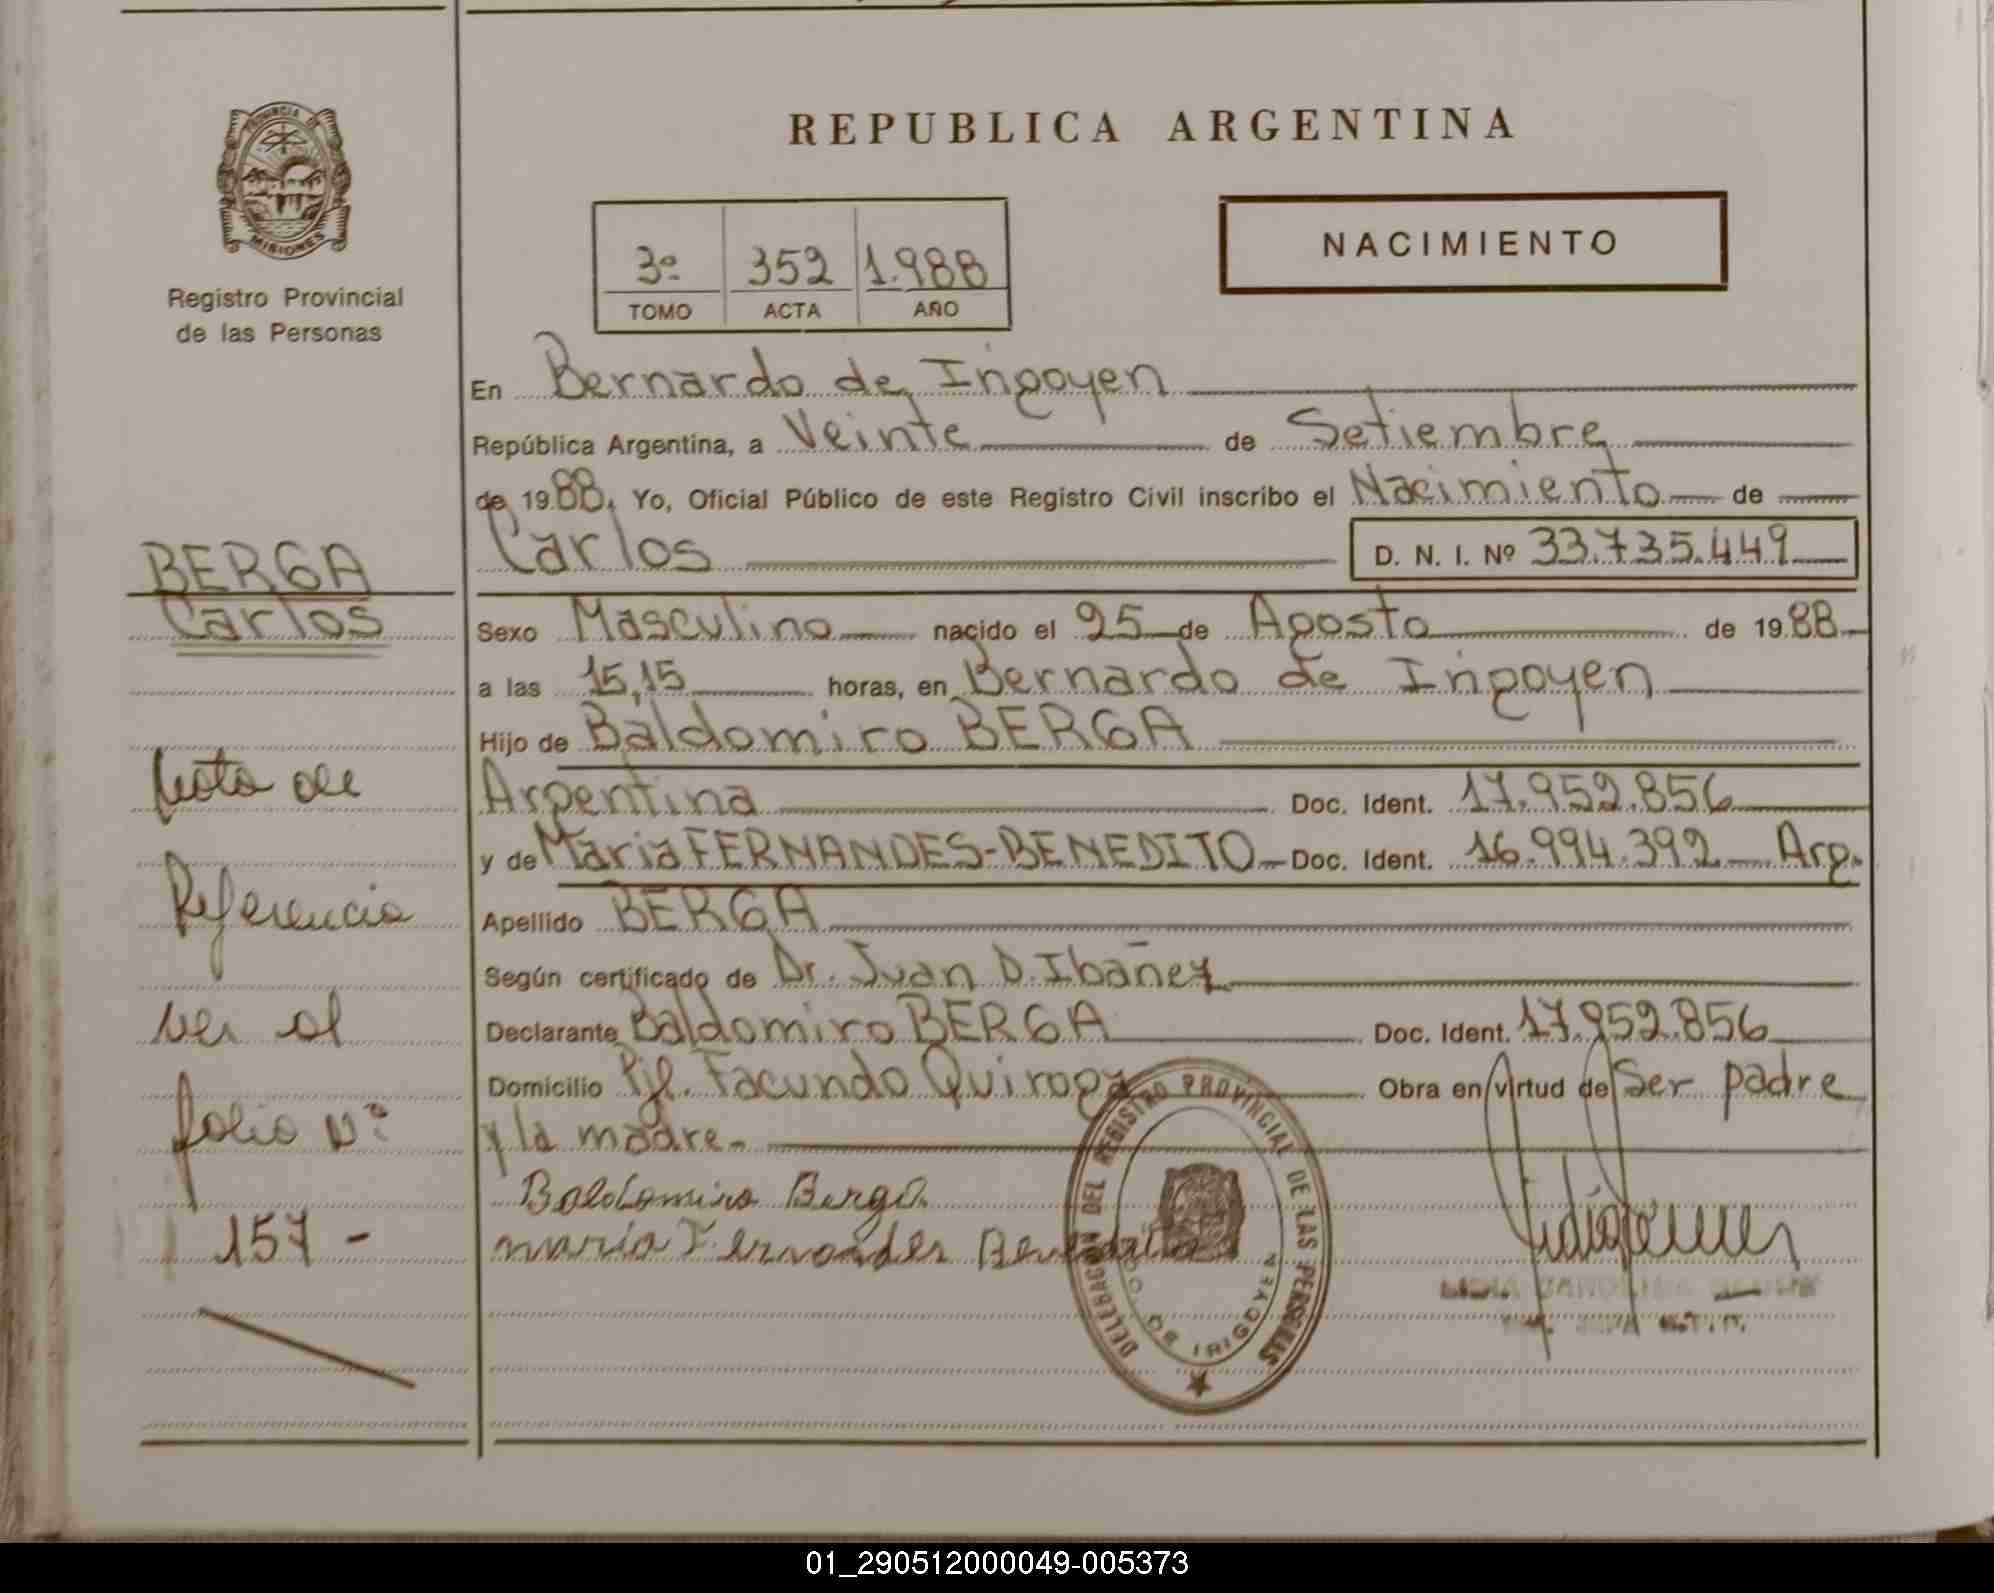 REPUBLICA ARGENTINA
PROVINCIA DE
MISIONES
Registro Provincial
de las Personas
3º 352 1.988
TOMO ACTA AÑO
NACIMIENTO
En Bernardo de Irigoyen
República Argentina, a Veinte de Setiembre
de 1988, Yo, Oficial Público de este Registro Civil inscribo el Nacimiento de
Carlos D. N. I. Nº 33.735.449
Sexo Masculino nacido el 25 de Agosto de 1988
a las 15,15 horas, en Bernardo de Irigoyen
Hijo de Baldomiro BERGA
Argentina Doc. Ident. 17.952.856
y de Maria FERNANDES-BENEDITO Doc. Ident. 16.994.392 Arg.
Apellido BERGA
Según certificado de Dr. Juan D. Ibañez
Declarante Baldomiro BERGA Doc. Ident. 17.952.856
Domicilio Pje. Facundo Quiroga Obra en virtud de Ser padre
y la madre.
Baldomiro Berga
maria Fernandes Benedito
BERGA
Carlos
Nota de
Referencia
ver al
folio Nº
157 -
DELEGACION DEL REGISTRO PROVINCIAL DE LAS PERSONAS
BDO. DE IRIGOYEN
01_290512000049-005373